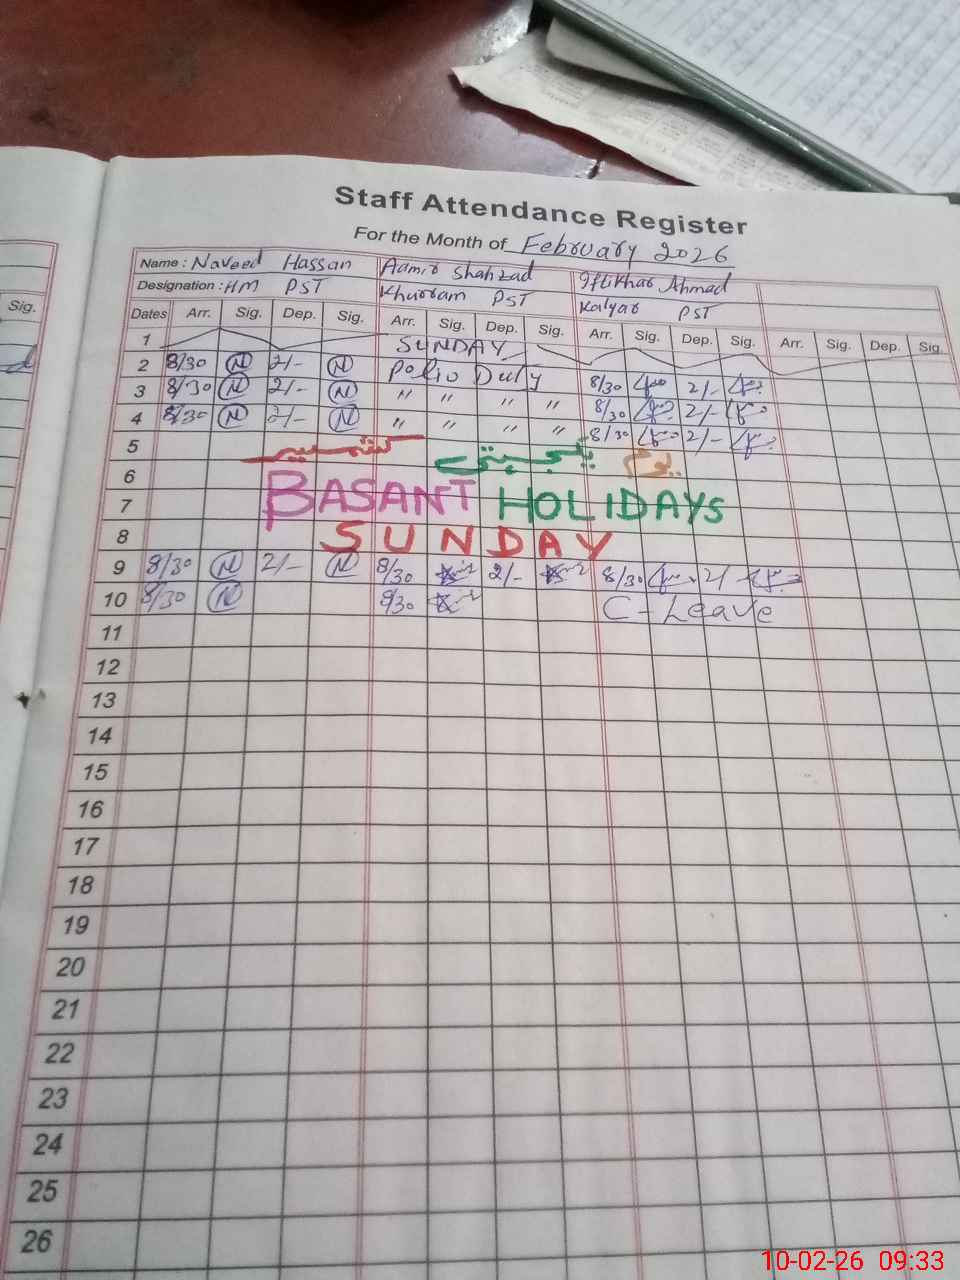 Staff Attendance Register
For the Month of February 2026
Name : Naveed Hassan Aamir Shahzad Iftikhar Ahmad
Designation : HM PST Khurram PST Kalyar PST
Sig.
Dates Arr. Sig. Dep. Sig. Arr. Sig. Dep. Sig. Arr. Sig. Dep. Sig. Arr. Sig. Dep. Sig.
1 SUNDAY
2 8/30 N 2/- N Polio Duty 8/30 2/-
3 8/30 N 2/- N " " " " 8/30 2/-
4 8/30 N 2/- N " " " " 8/30 2/-
5 یوم یکجہتی کشمیر
6
7 BASANT HOLIDAYS
8 SUNDAY
9 8/30 N 2/- N 8/30 2/- 8/30 2/
10 8/30 N 8/30 C-Leave
11
12
13
14
15
16
17
18
19
20
21
22
23
24
25
26
10-02-26 09:33